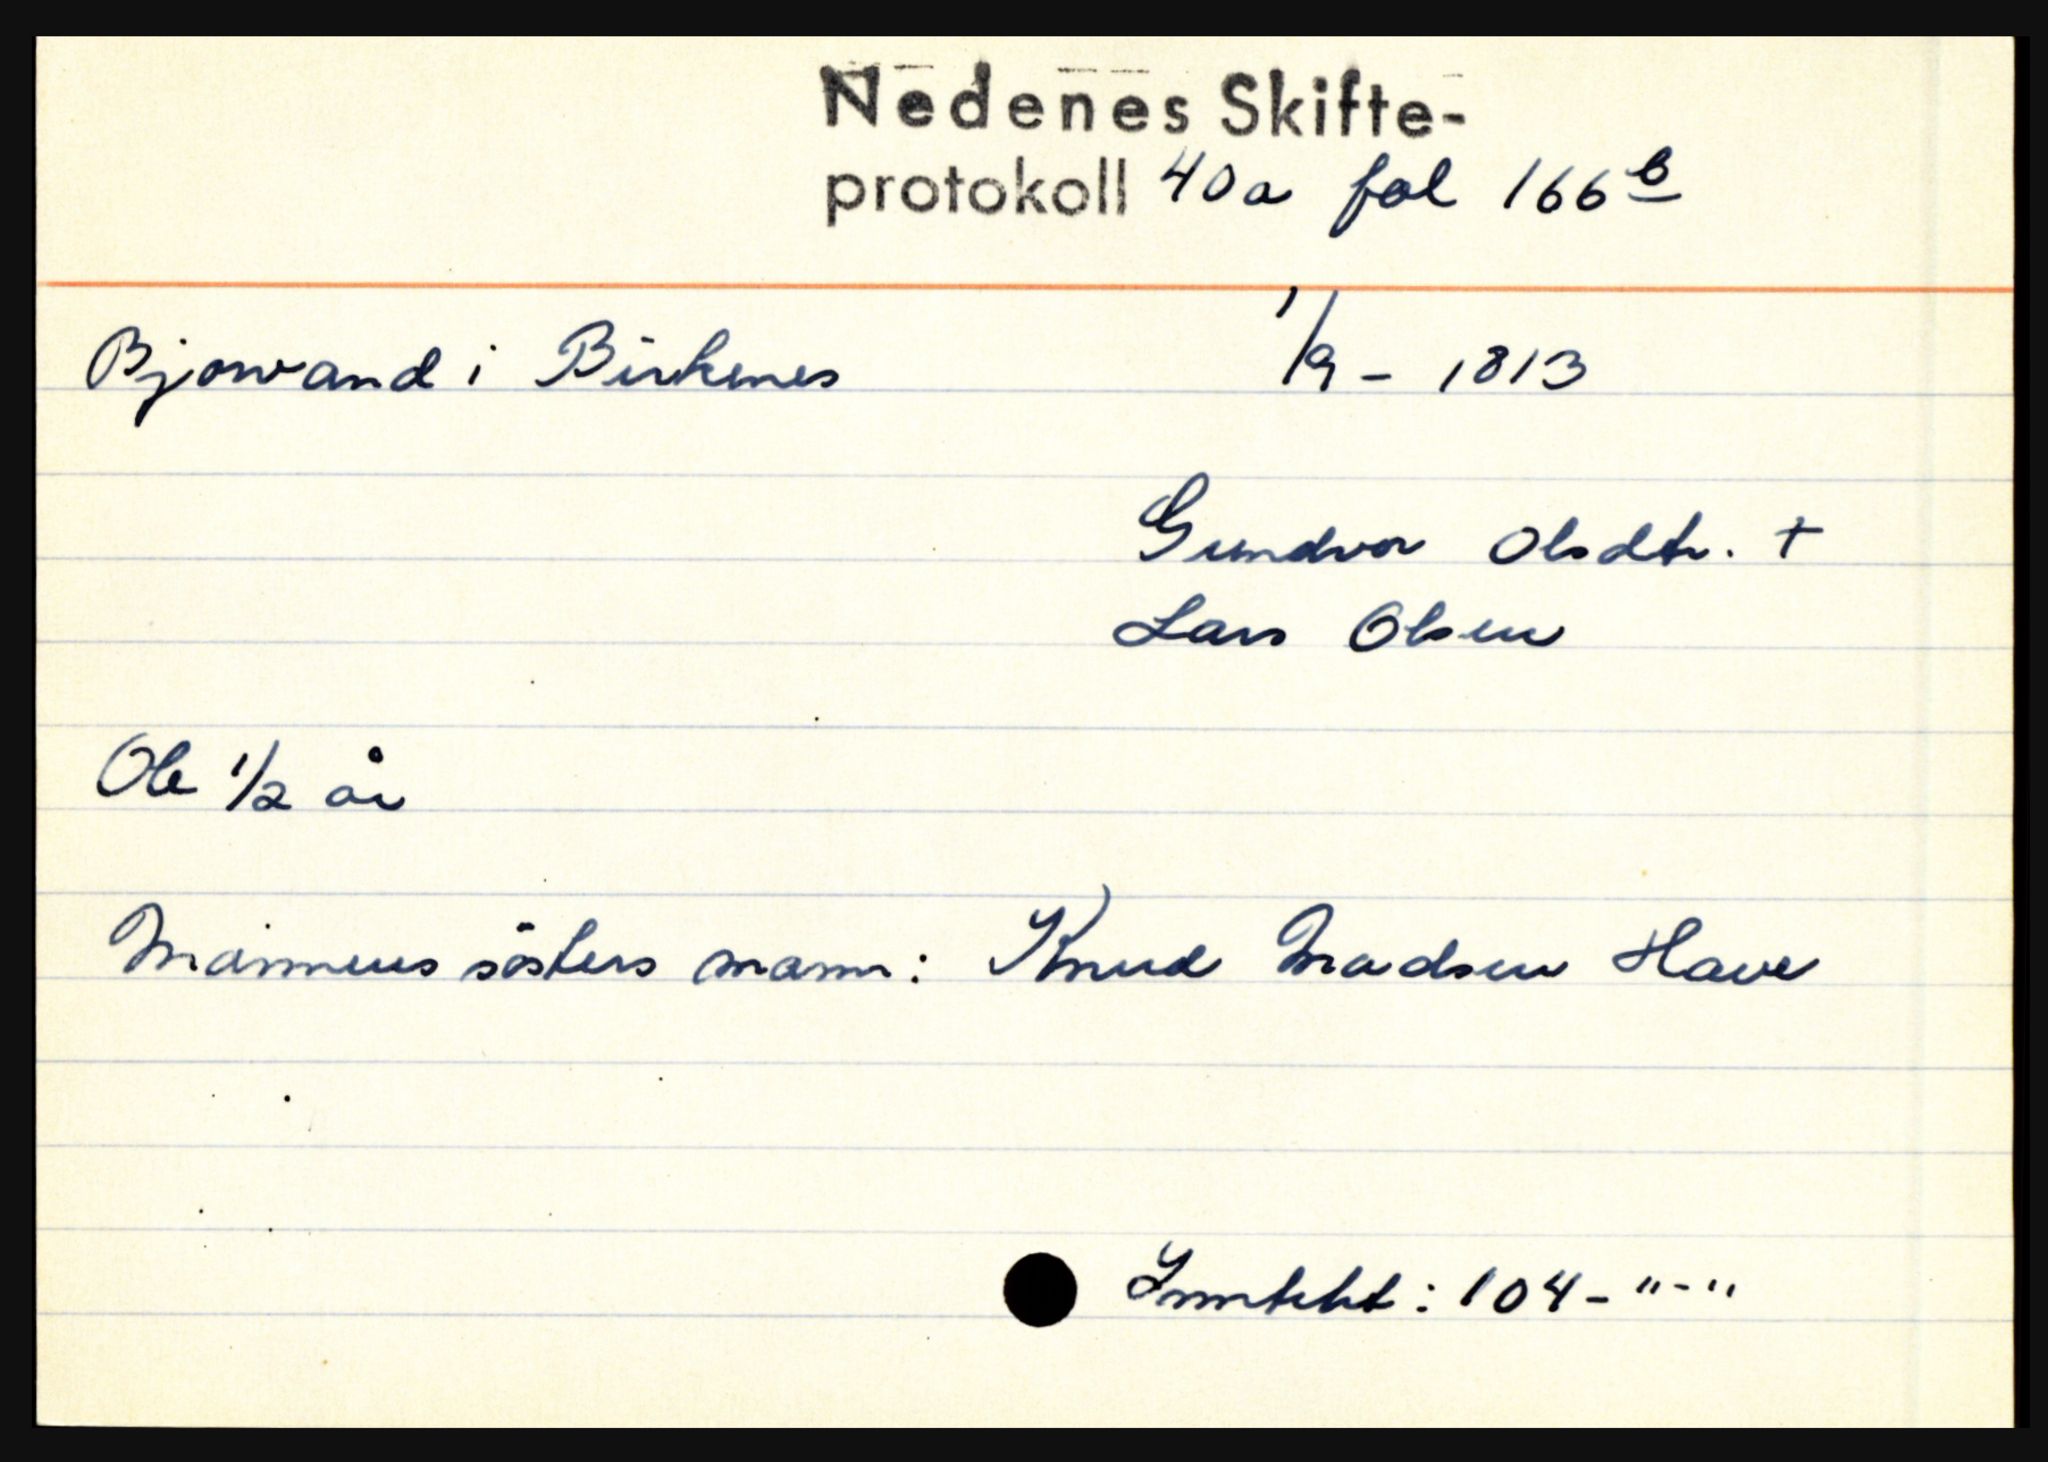 Nedenes Skifte-
protokoll 40a fol 166b
Bjorvand i Birkenes 1/9 - 1813
Gundvor Olsdtr. +
Lars Olsen
Ole 1/2 år
Mannens søsters mann: Knud Madsen Have
Inntekt: 104 - " - "